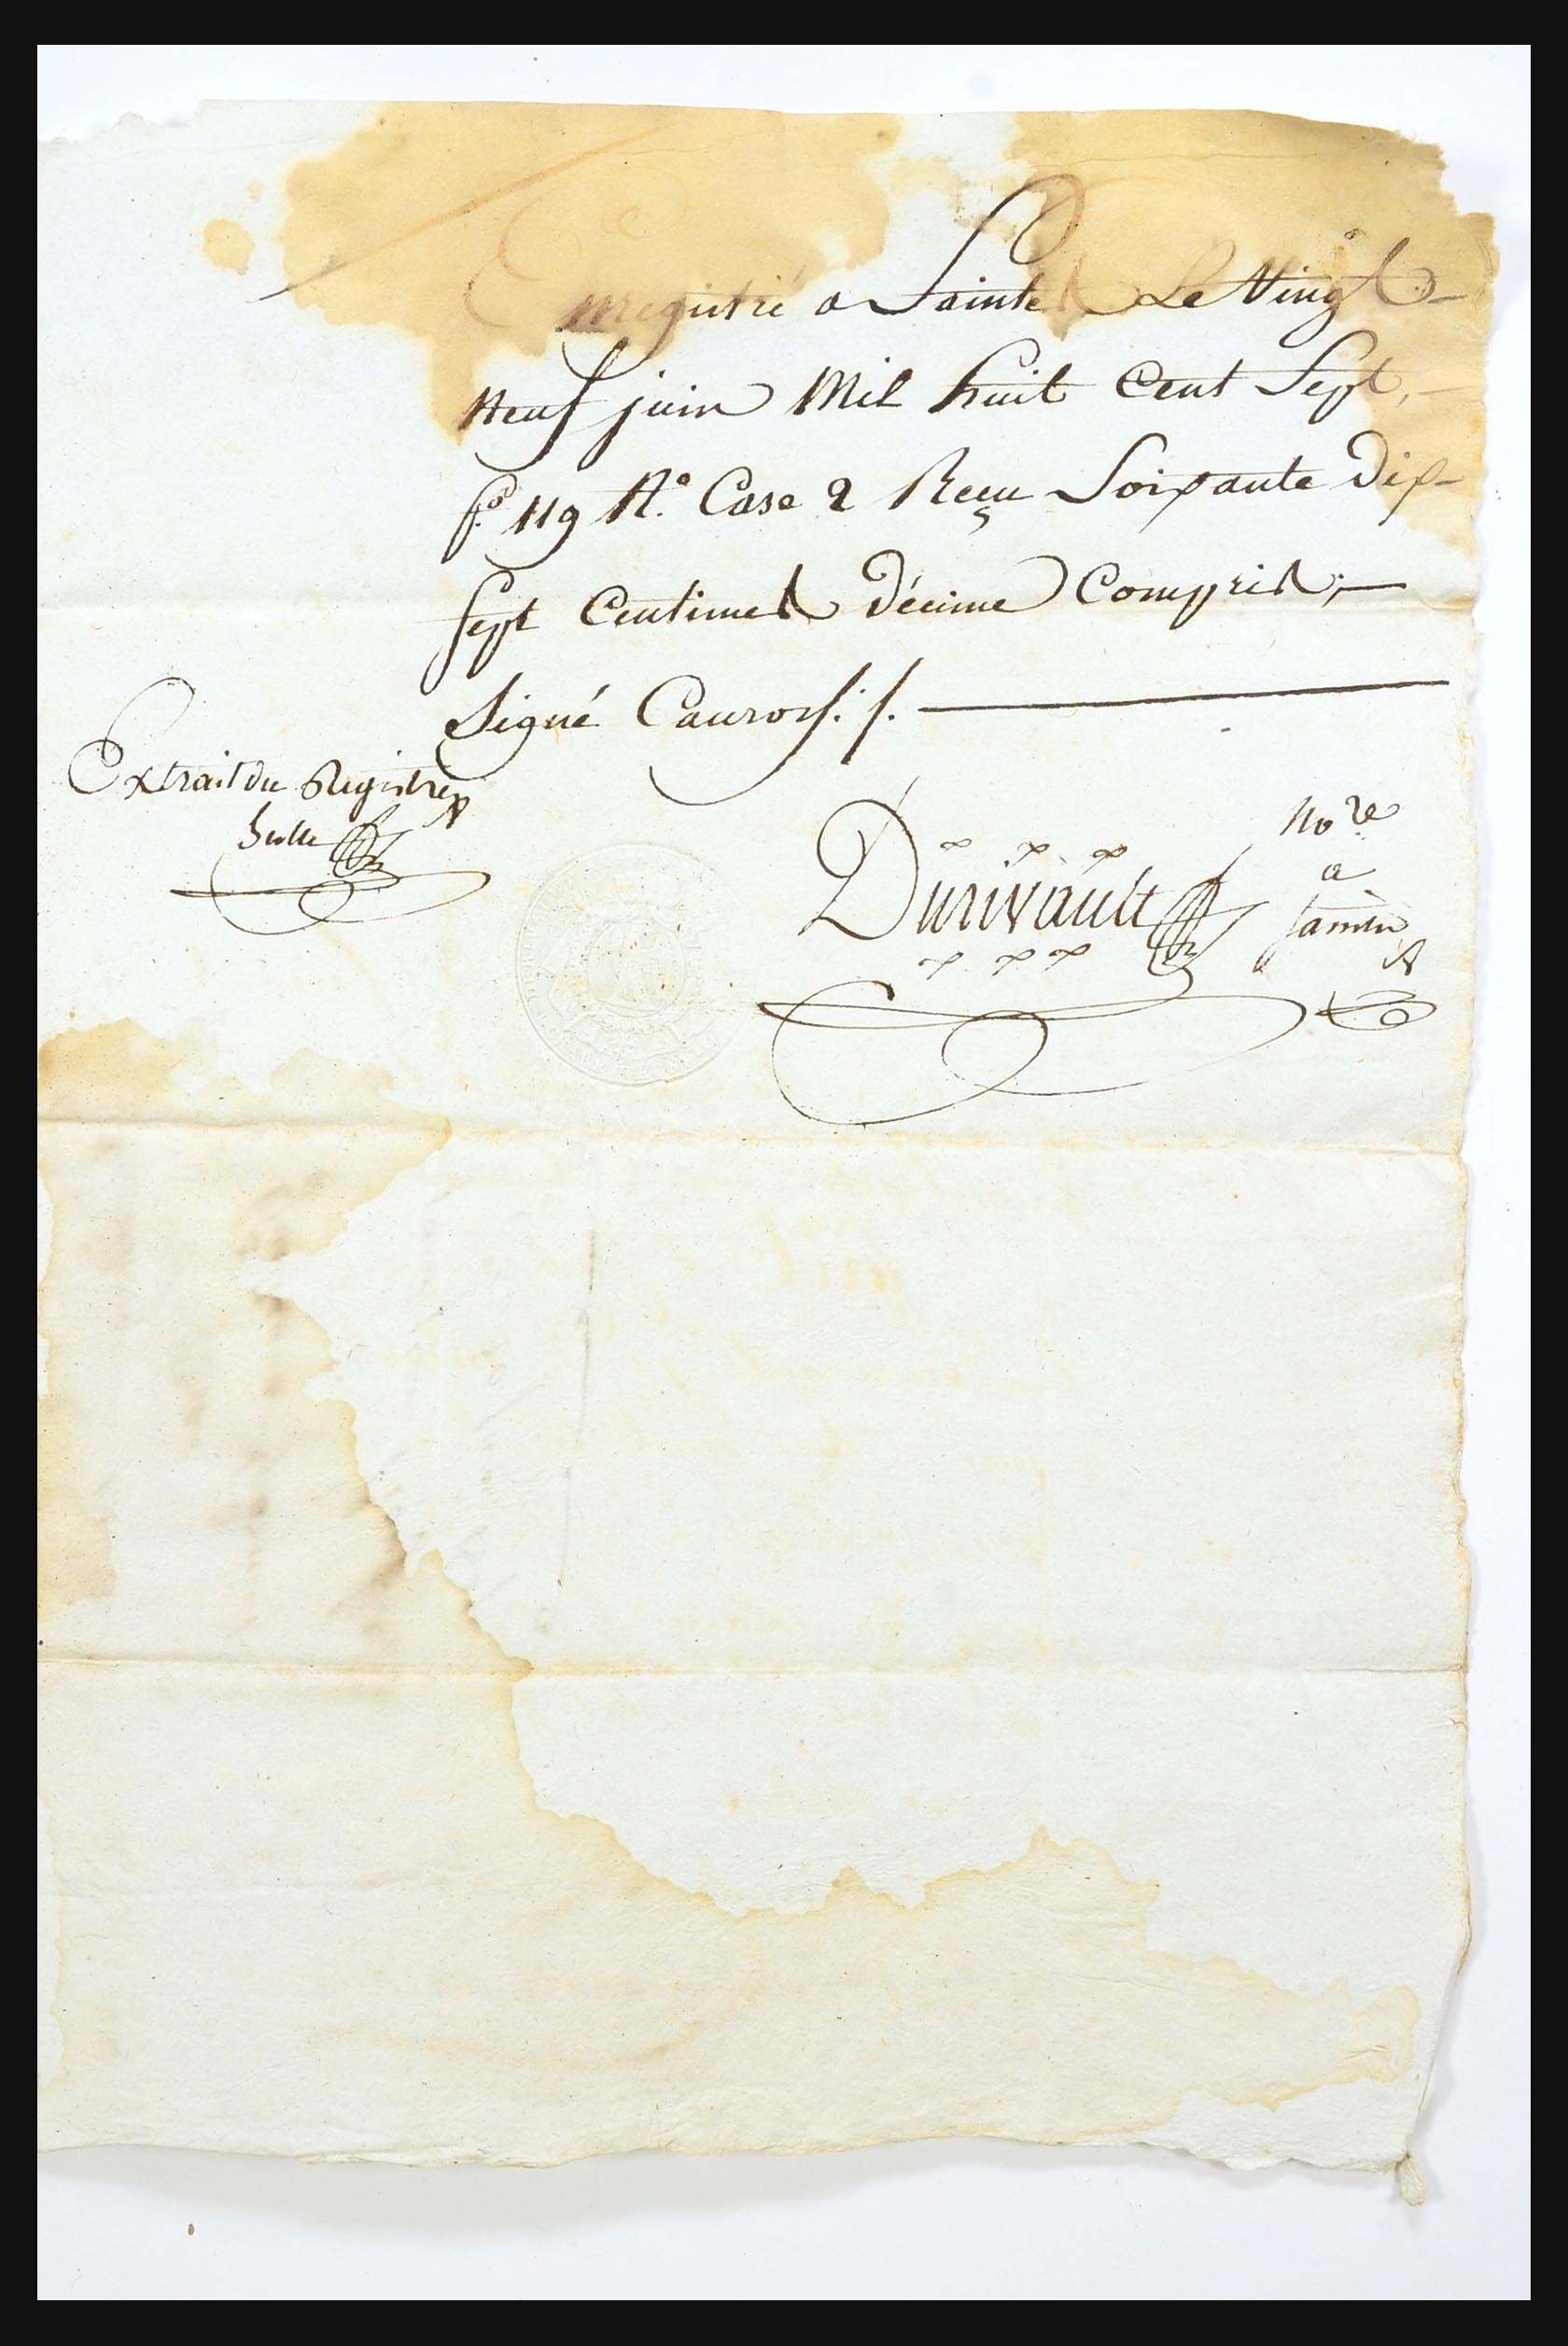 Enregistré a Saintes Le Vingt-
Neuf juin Mil huit Cent Sept,-
f.º 119 R.º Case 2 Reçu Soixante Dix-
Sept Centimes Décime Compris;-
Signé Cauroy./.
Extrait du Registre
Durivault
No.re
a